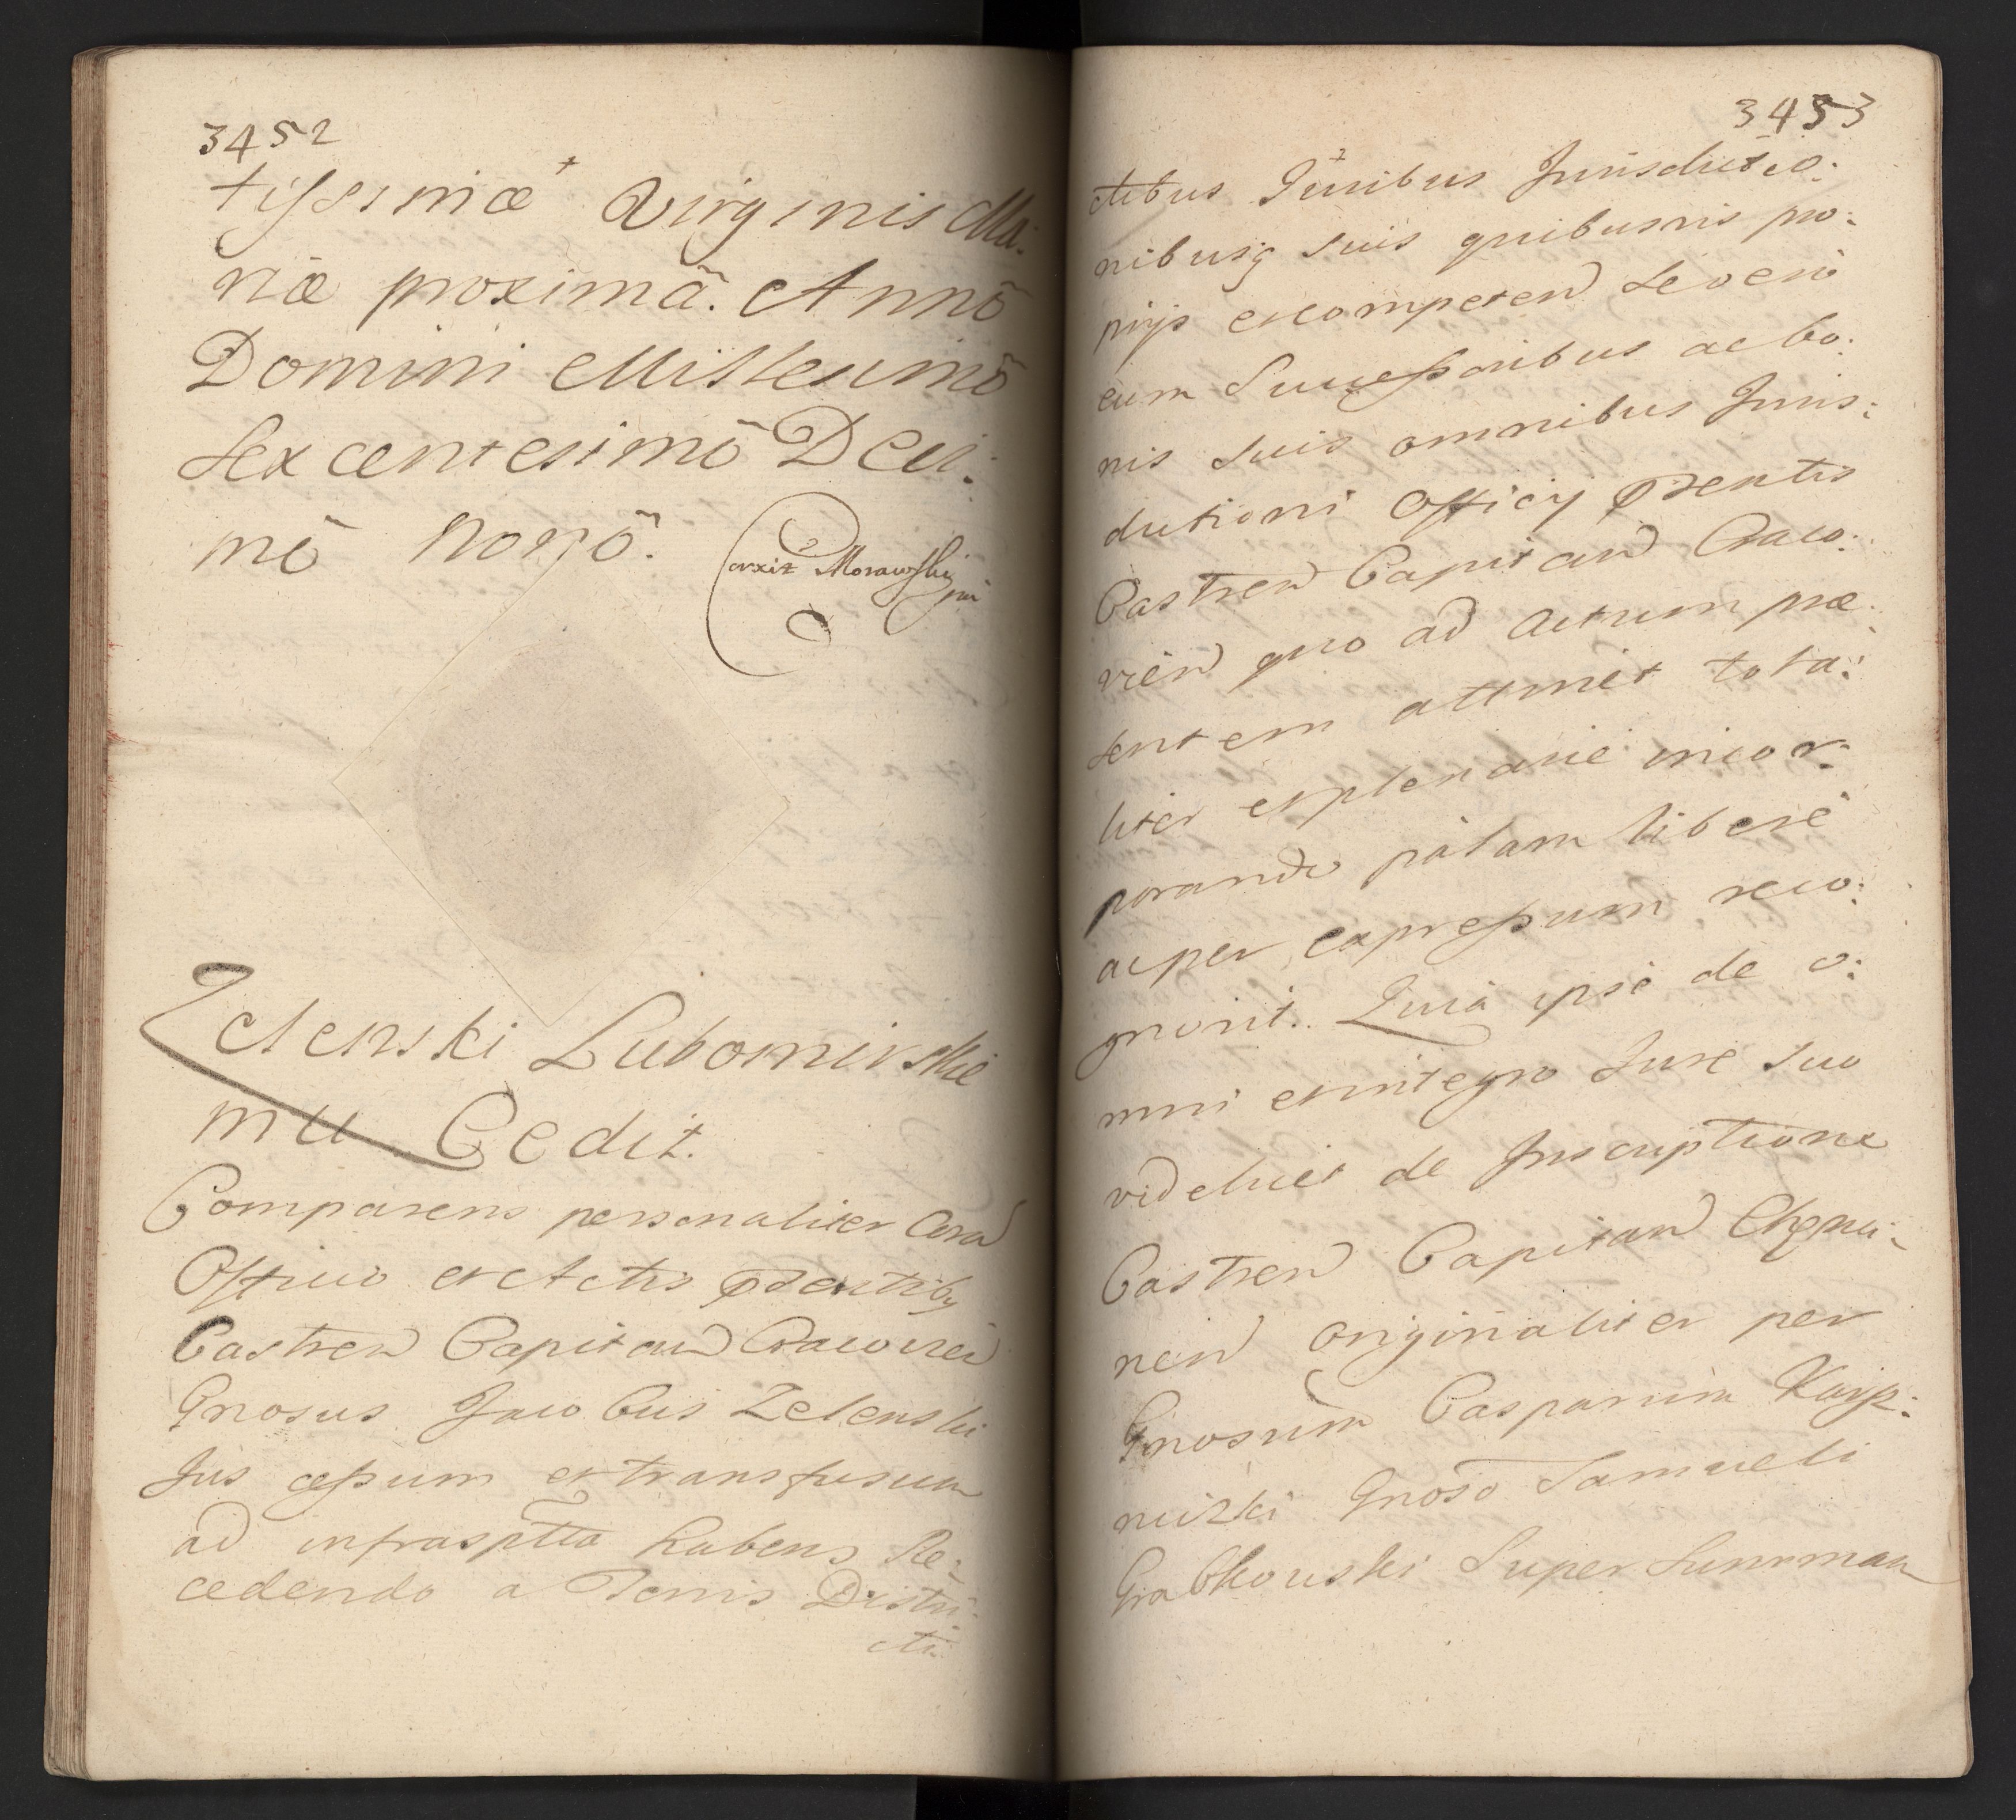 3452
tissimæ Virginis Ma:
riæ proximã. Annõ
Domini Millesimõ
Sexcentesimõ Deci:
mõ nonõ.
Correxit Morawski mp
Zelenski Lubomirskie
mu Cedit.
Comparens personaliter Corã
Officio et Actis Præntibq
Castren Capitan Cracovien
Gnosus Jacobus Zelenski
Jus cessum et transfusum
ad infrasptta habens Re:
cedendo a Terris Distri:
cti
3453
ctibus Juribus Jurisdictio:
nibusq suis quibusvis pro:
prijs et competen se vero
eum Successoribus ac bo:
nis suis omnibus Juris:
dictioni Officij Præntis
Castren Capitan Craco:
vien quo ad Actum præ:
sentem attinet tota:
liter et plenarie incor:
porando palam libere
ac per expressum reco:
gnovit. Quia ipse de o:
mni et integro Jure suo
videlicet de Inscriptione
Castren Capitan Chęnci:
nen originaliter per
Gnosum Casparum Karp:
nicki Gnoso Samueli
Grabkowski Super Summam